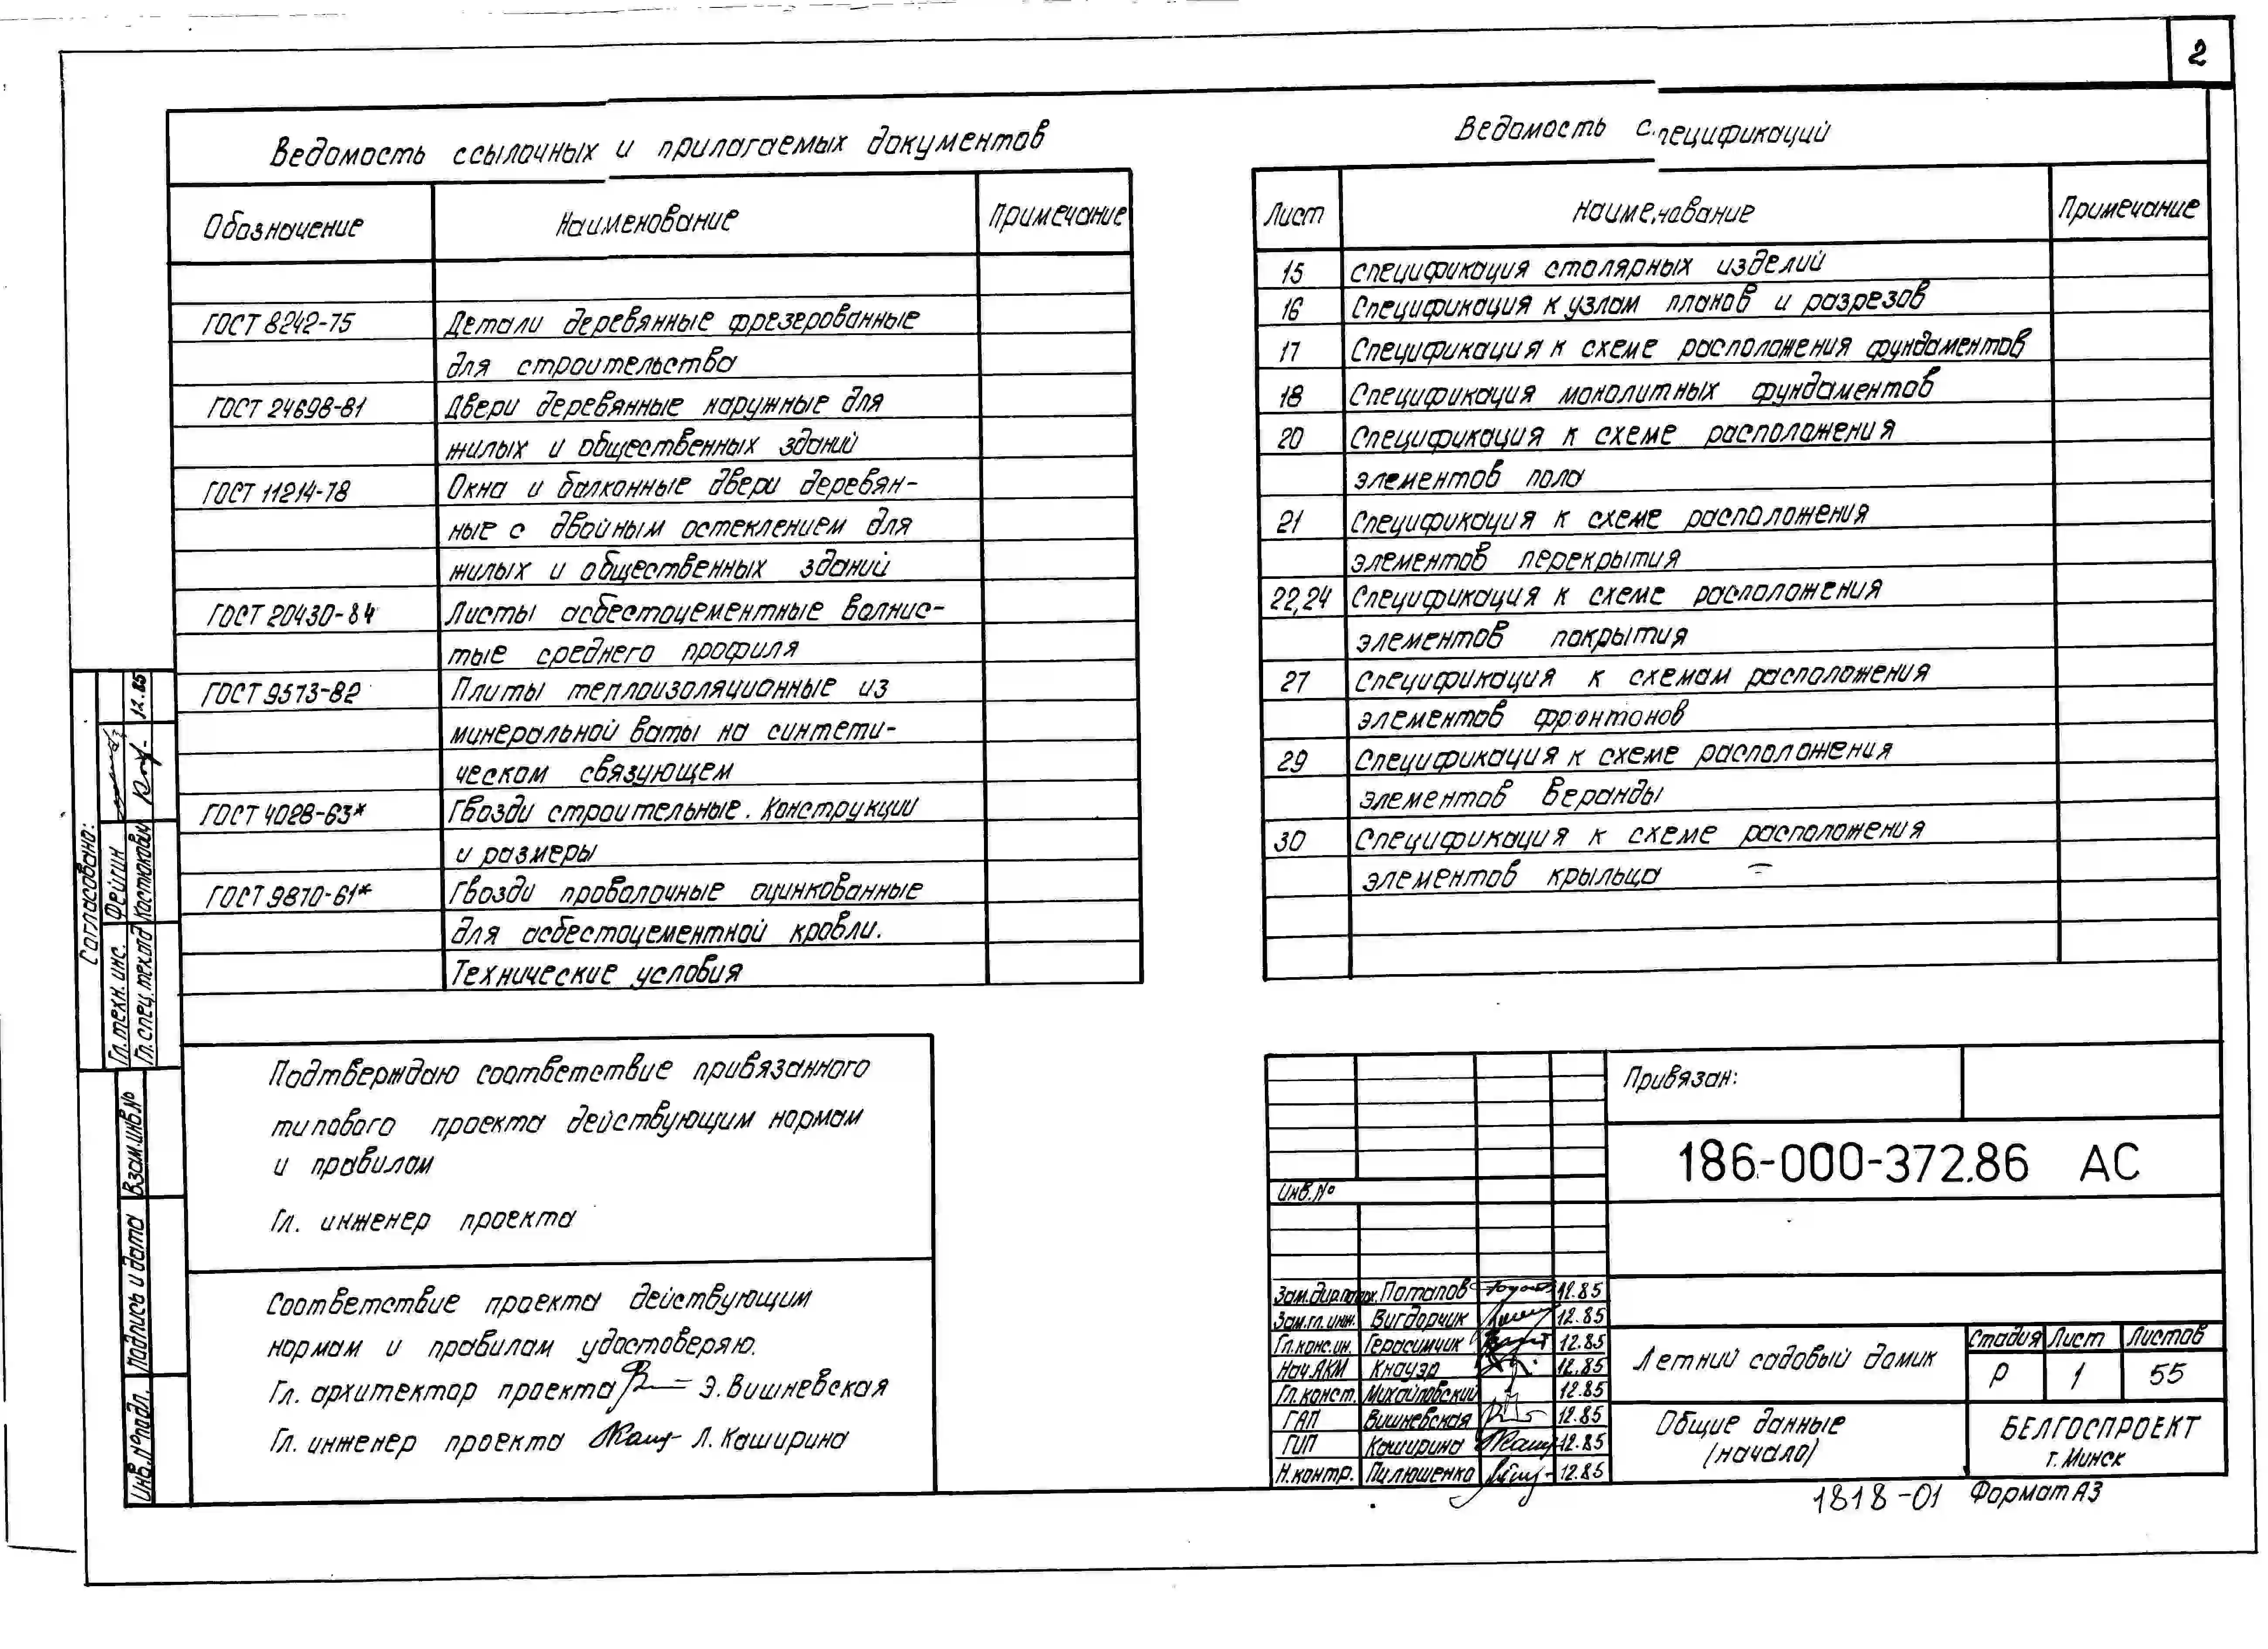 2
Ведомость ссылочных и прилагаемых документов
Обозначение Наименование Примечание
ГОСТ 8242-75 Детали деревянные фрезерованные
для строительства
ГОСТ 24698-81 Двери деревянные наружные для
жилых и общественных зданий
ГОСТ 11214-78 Окна и балконные двери деревян-
ные с двойным остеклением для
жилых и общественных зданий
ГОСТ 20430-84 Листы асбестоцементные волнис-
тые среднего профиля
ГОСТ 9573-82 Плиты теплоизоляционные из
минеральной ваты на синтети-
ческом связующем
ГОСТ 4028-63* Гвозди строительные. Конструкции
и размеры
ГОСТ 9870-61* Гвозди проволочные оцинкованные
для асбестоцементной кровли.
Технические условия
Ведомость спецификаций
Лист Наименование Примечание
15 Спецификация столярных изделий
16 Спецификация к узлам планов и разрезов
17 Спецификация к схеме расположения фундаментов
18 Спецификация монолитных фундаментов
20 Спецификация к схеме расположения
элементов пола
21 Спецификация к схеме расположения
элементов перекрытия
22,24 Спецификация к схеме расположения
элементов покрытия
27 Спецификация к схемам расположения
элементов фронтонов
29 Спецификация к схеме расположения
элементов веранды
30 Спецификация к схеме расположения
элементов крыльца
Согласовано:
Гл.техн.инс. Фейгин
Гл.спец.техотд Костюкович 12.85
Взам.инв.№
Подпись и дата
Инв.№подл.
Подтверждаю соответствие привязанного
типового проекта действующим нормам
и правилам
Гл. инженер проекта
Соответствие проекта действующим
нормам и правилам удостоверяю.
Гл. архитектор проекта Э. Вишневская
Гл. инженер проекта Л. Каширина
Привязан:
Инв.№
186-000-372.86 АС
Потапов 12.85
Зам.гл.инж. Вигдорчик 12.85
Гл.конс.ин. Герасимчик 12.85
Нач.АКМ Кнауэр 12.85
Гл.конст. Михайловский 12.85
ГАП Вишневская 12.85
ГИП Каширина 12.85
Н.контр. Пилюшенко 12.85
Летний садовый домик
Стадия Лист Листов
Р 1 55
Общие данные
(начало)
БЕЛГОСПРОЕКТ
г. Минск
1818-01 Формат А3